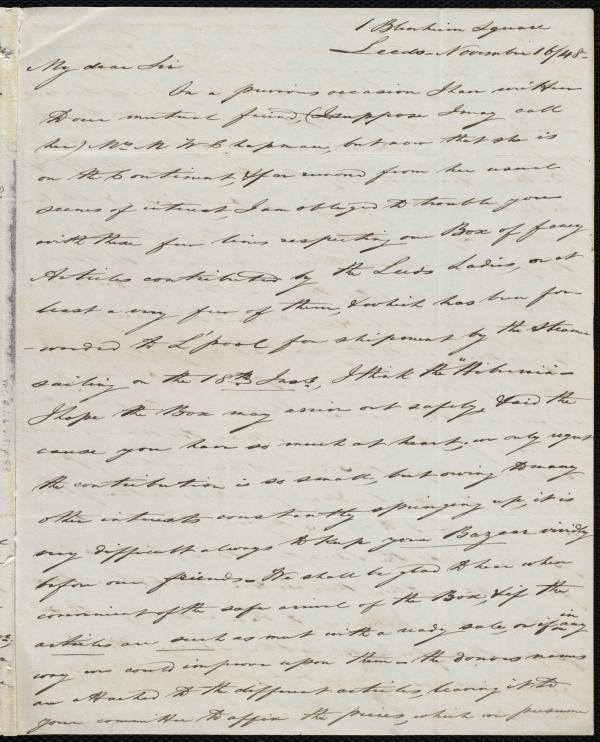 1 Blenheim Square
Leeds - November 16/48 -
My dear Sir
On a previous occasion I have written
to our mutual friend, (I suppose I may call
her) Mrs M W Chapman, but now that she is
on the Continent, & far removed from her usual
scenes of interest, I am obliged to trouble you
with these few lines respecting our Box of fancy
Articles contributed by the Leeds Ladies, or at
least a very few of them, & which has been for-
-warded to L'pool for shipment by the Steamer
sailing on the 18th Inst, I think the "Hibernia" -
I hope the Box may arrive out safely, & aid the
cause you have so much at heart, we only regret
the contribution is so small, but owing to many
other interests constantly springing up, it is
very difficult always to keep your Bazaar vividly
before our friends - We shall be glad to hear when
convenient of the safe arrival of the Box, & if the
articles are such as meet with a ready sale, or if in any
way we could improve upon them - the donors names
are attached to the different articles, leaving it to
your committee to affix the prices, which we presume